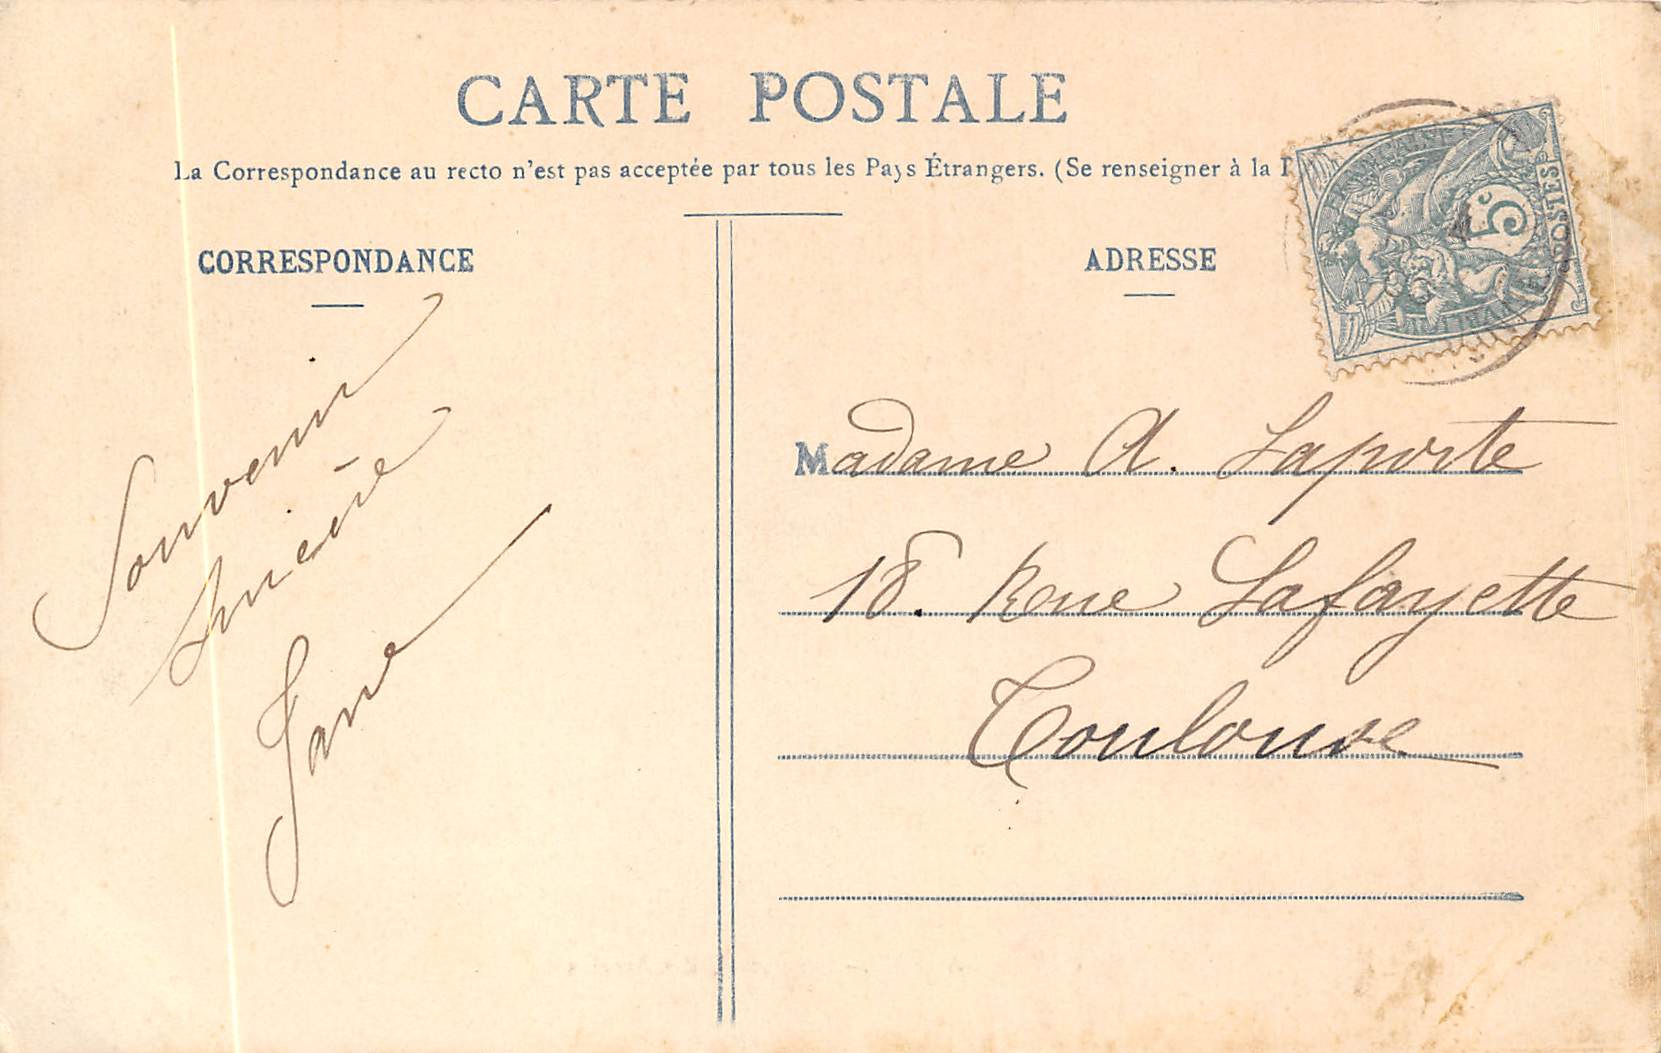 CARTE POSTALE
La Correspondance au recto n'est pas acceptée par tous les Pays Étrangers. (Se renseigner à la
CORRESPONDANCE
Souvenir
sincère
Jane
ADRESSE
5c
POSTES
Madame A. Laporte
18. Rue Lafayette
Toulouse